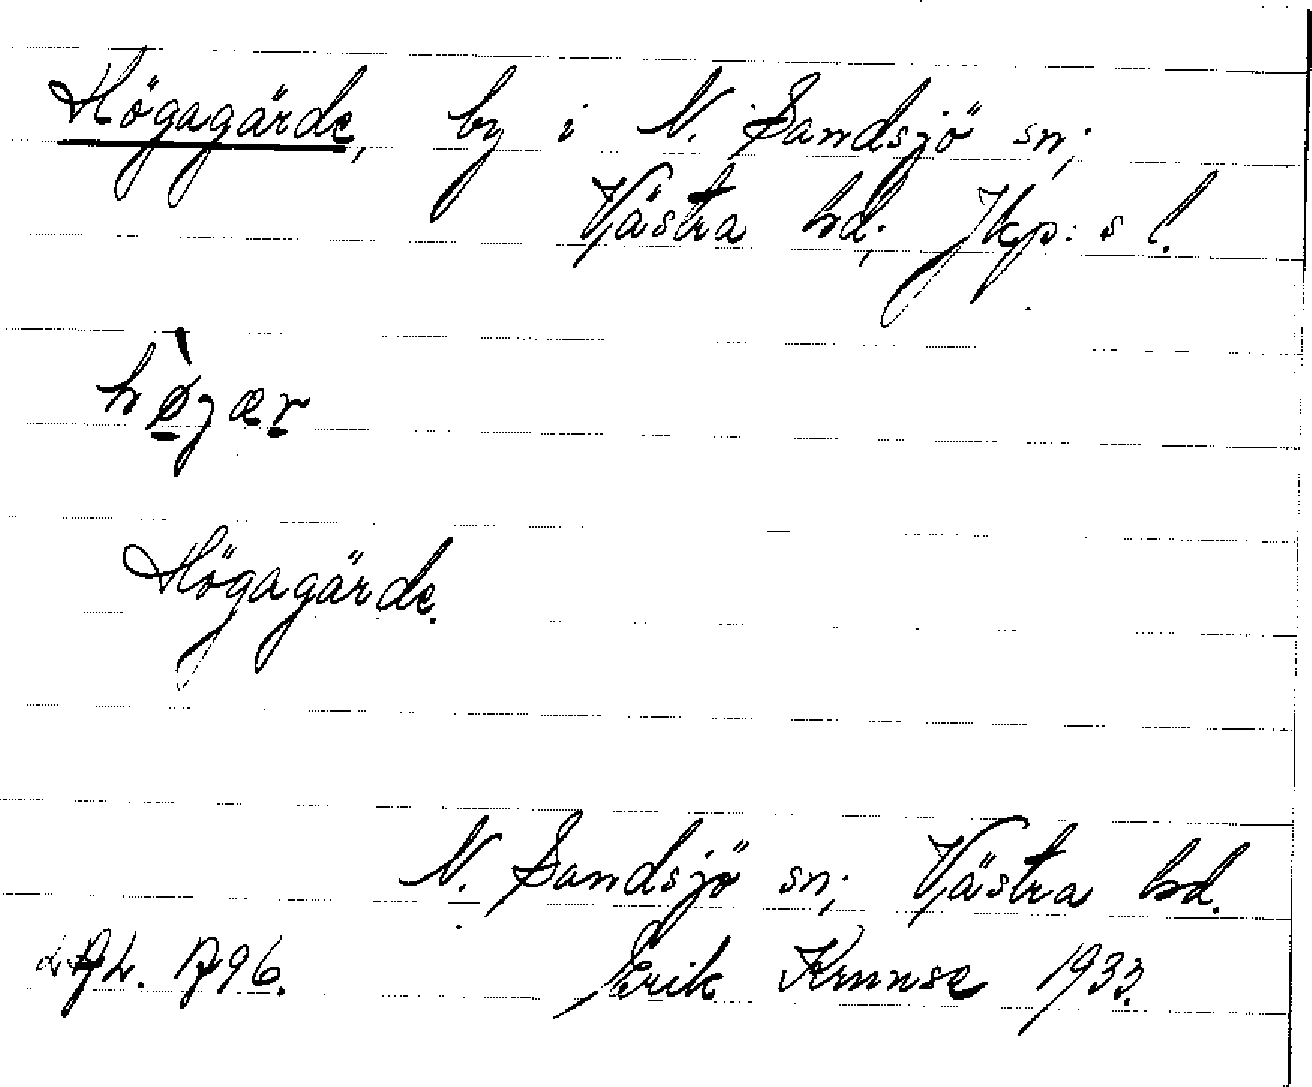 Högagärde, by i N. Sandsjö sn;
Västra hd; Jkp: s l.
hø̀gær
Högagärde.
N. Sandsjö sn; Västra hd.
Erik Krunse 1933.